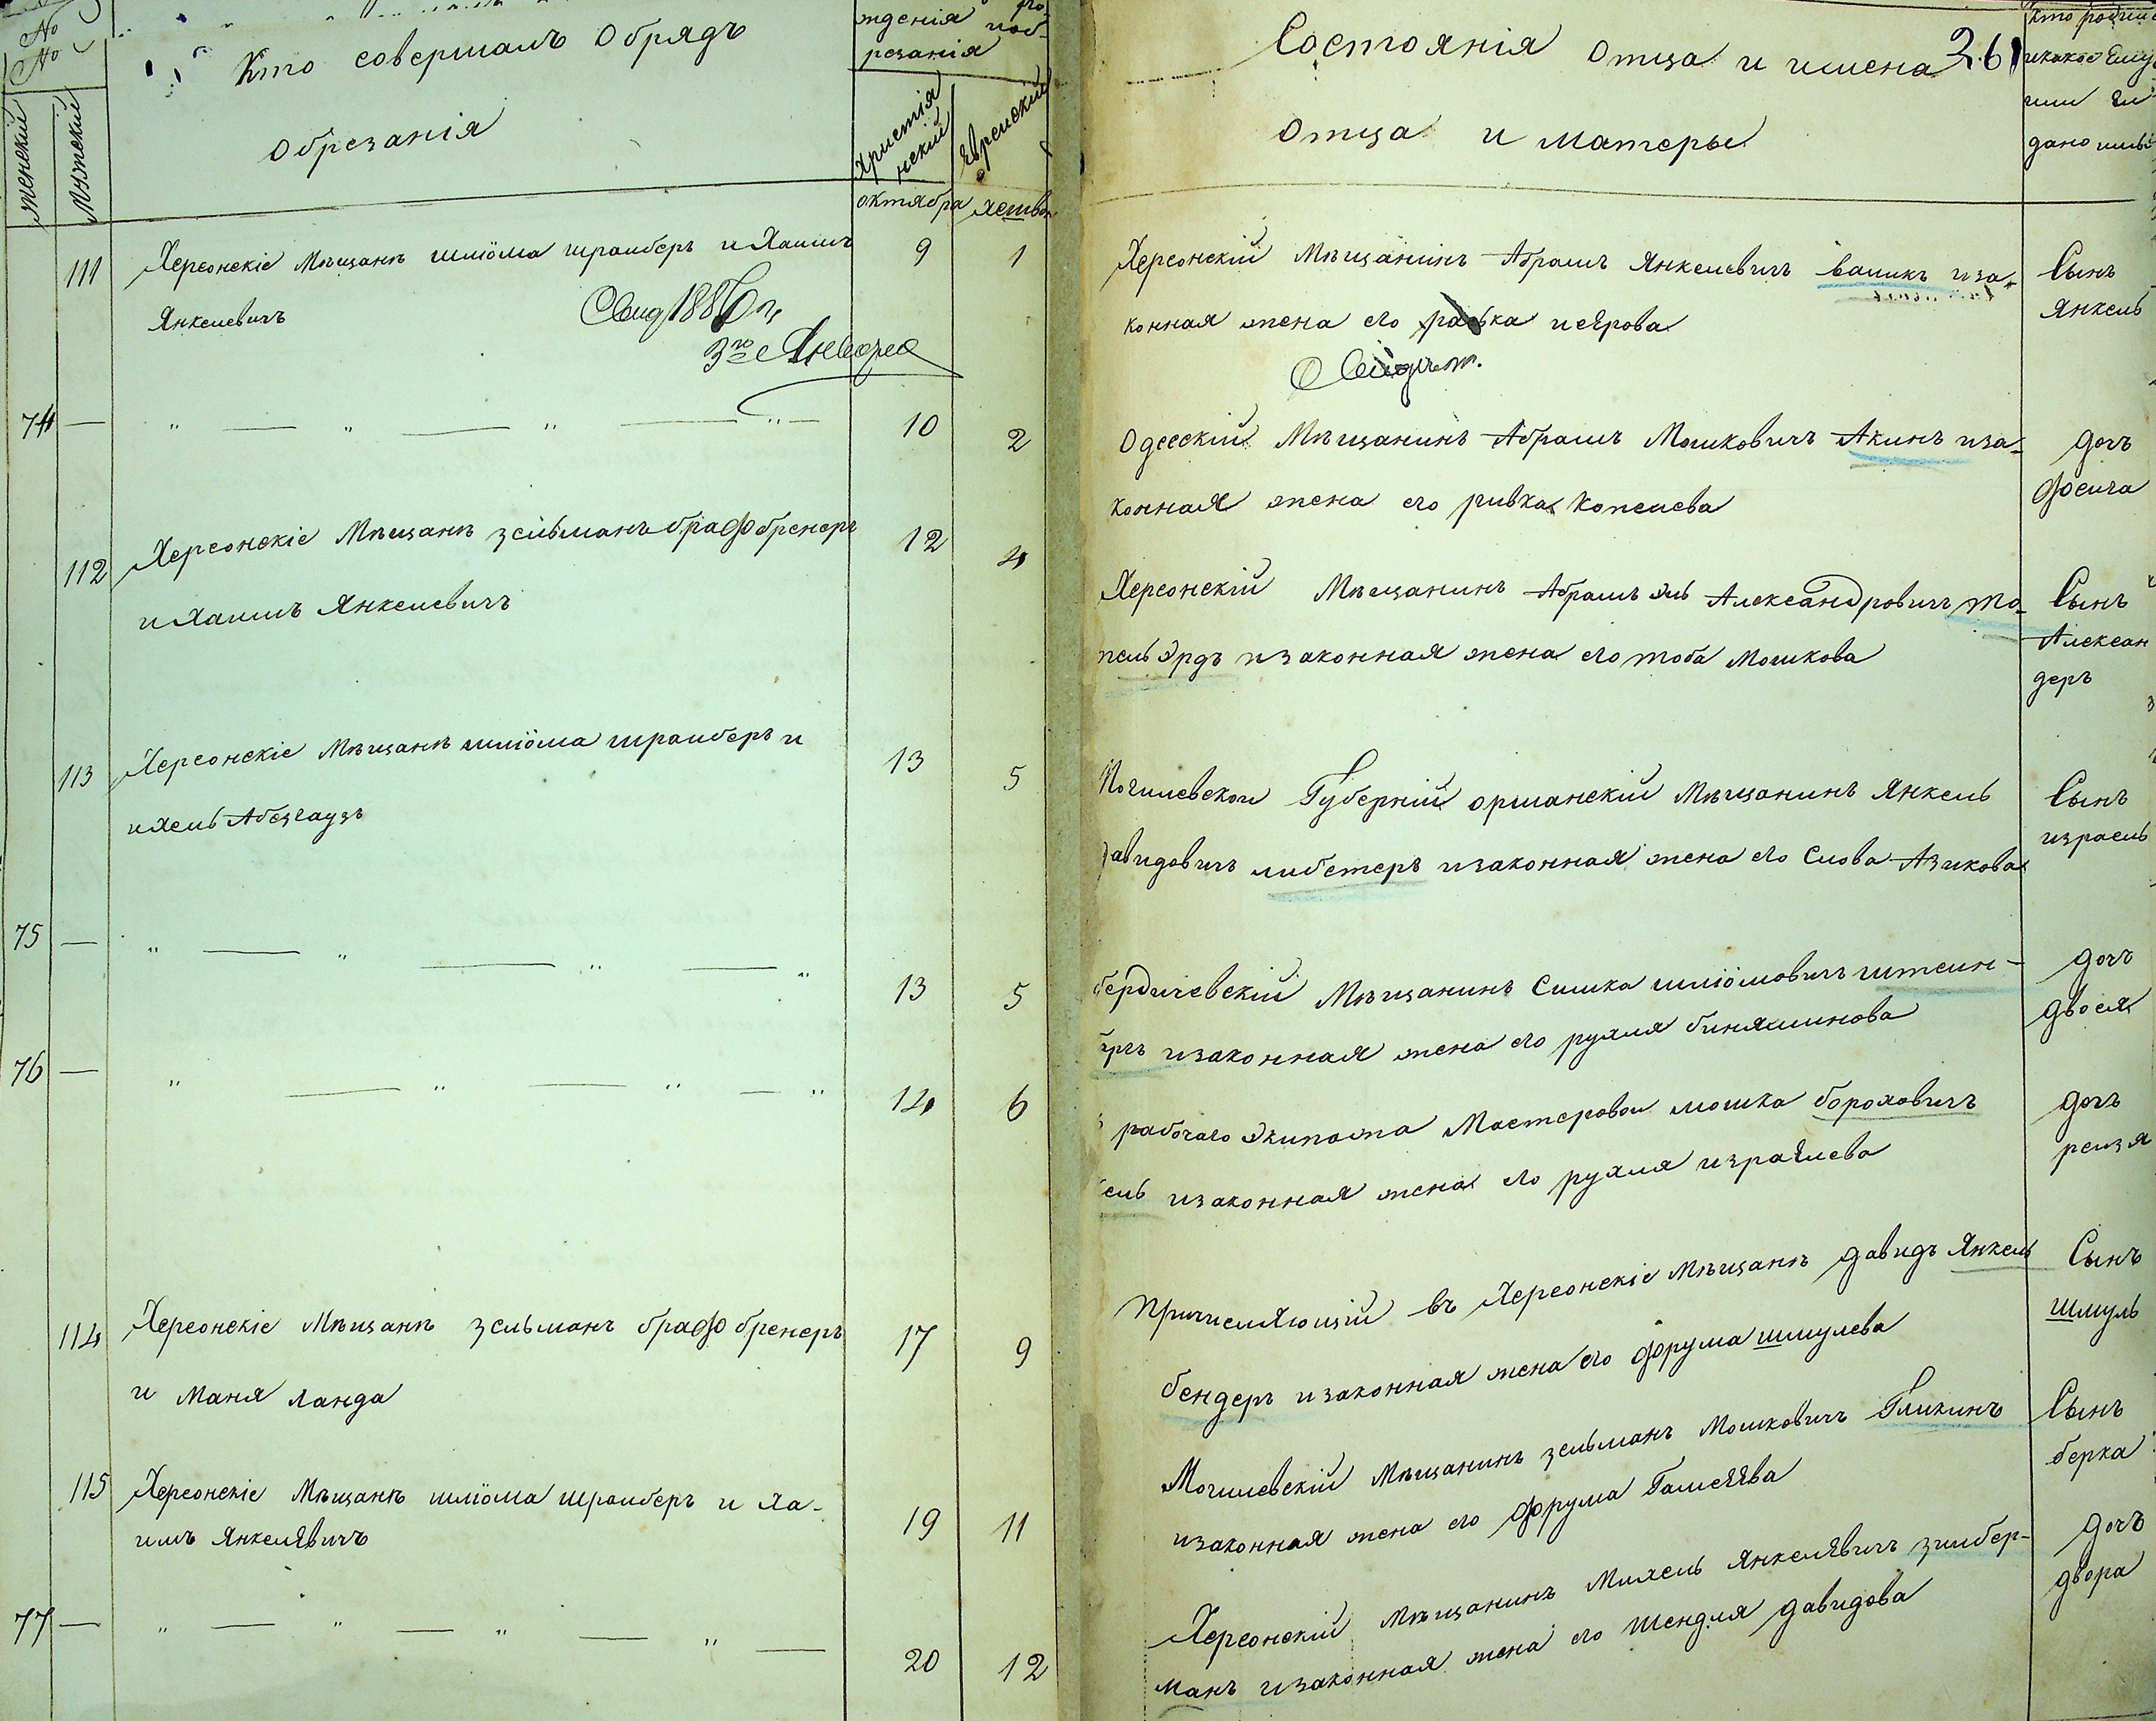 №
№
женскій
мужескій
Кто совершалъ Обрядъ
Обрезанія
жденія
и об-
резанія
Христія
нскій
Еврейскій
октября
хешвон
111
Херсонскіе Мѣщанѣ шліома шрайберъ и Хаимъ
Янкелевичъ
Свид 1886 г.
3го Января
9
1
74 —
10
2
112
Херсонскіе Мѣщанѣ зельманъ брафбренеръ
и Хаимъ Янкелевичъ
12
4
113
Херсонскіе Мѣщанѣ шліома шрайберъ и
ихель Абезгаузъ
13
5
75 —
13
5
76 —
14
6
114
Херсонскіе Мѣщанѣ зельманъ брафбренеръ
и Маня Ланда
17
9
115
Херсонскіе Мѣщанѣ шліома шрайберъ и Ха-
имъ Янкелевичъ
19
11
77 —
20
12
Состоянія Отца и имена
Отца и матеры
261
Кто родил
и какое Ему
или Ей
дано имя
Херсонскій Мѣщанинъ Абрамъ Янкелевичъ и за-
конная жена его
Свидѣт.
Сынъ
Янкель
Одесскій Мѣщанинъ Абрамъ Мошковичъ Акинъ и за-
конная жена его ривка Копелева
дочь
Фейга
Херсонскій Мѣщанинъ Абрамъ Эль Александровичъ То-
пельэрдъ и законная жена его тоба Мошкова
Сынъ
Алексан
деръ
Могилевской Губерній оршанскій Мѣщанинъ Янкель
Давидовичъ либстеръ и законная жена его Слова Азикова
Сынъ
израель
бердичевскій Мѣщанинъ Симка шліомовичъ штейн-
бергъ и законная жена его рухля биняминова
дочь
двося
рабочаго Экипажа Мастеровой мошка бороховичъ
ель и законная жена его рухля израЕлева
дочь
рейзя
Причисляющій въ Херсонскіе Мѣщанѣ давидъ Янкель
бендеръ и законная жена его фрума шмулева
Сынъ
шмуль
Могилевскій Мѣщанинъ зельманъ Мошковичъ Гликинъ
и законная жена его фрума
Сынъ
берка
Херсонскій Мѣщанинъ Михель Янкелевичъ зилбер-
манъ и законная жена его шендля давидова
дочь
двора